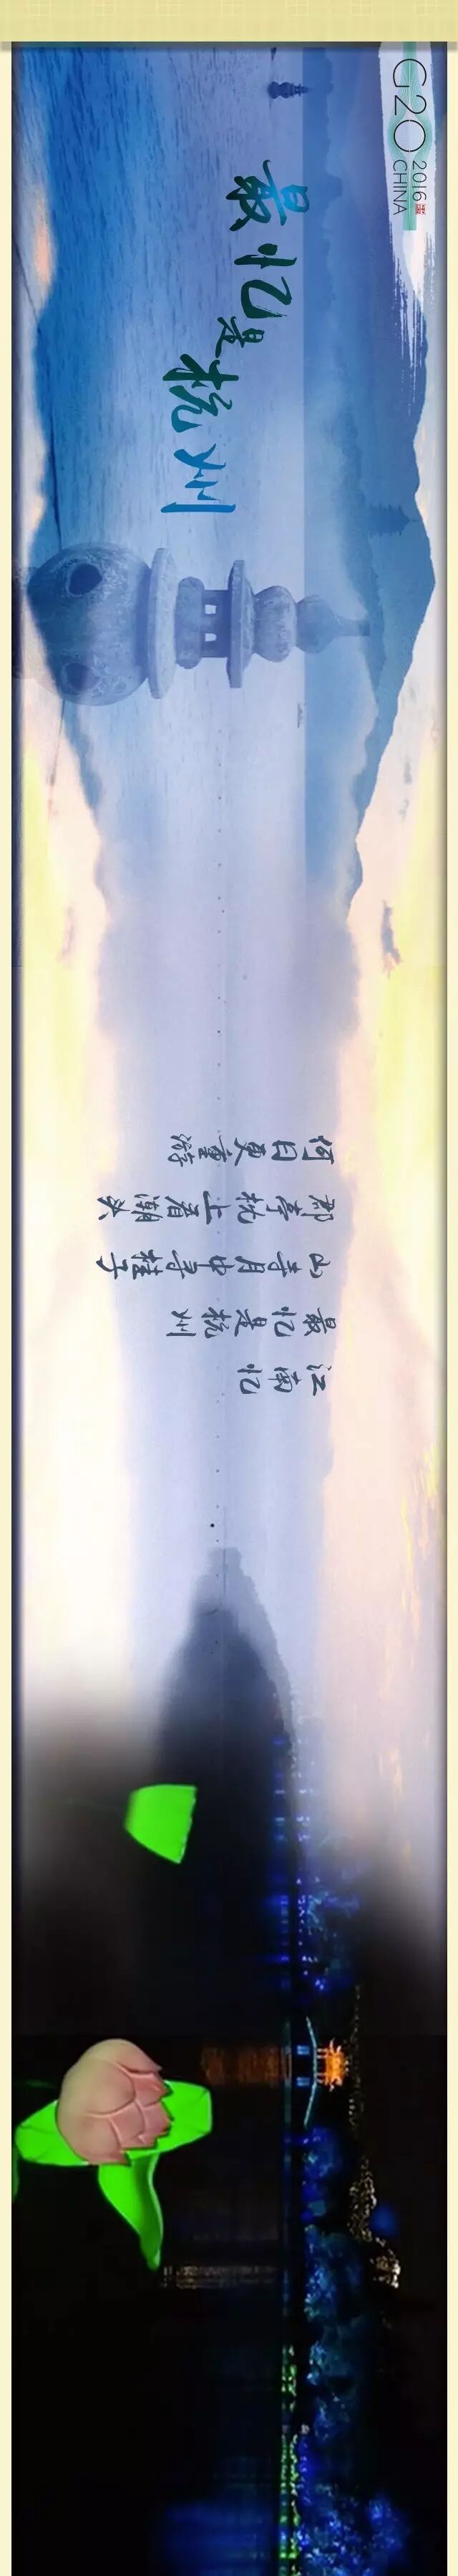 G20 2016
CHINA
最忆是杭州
江南忆
最忆是杭州
山寺月中寻桂子
郡亭枕上看潮头
何日更重游